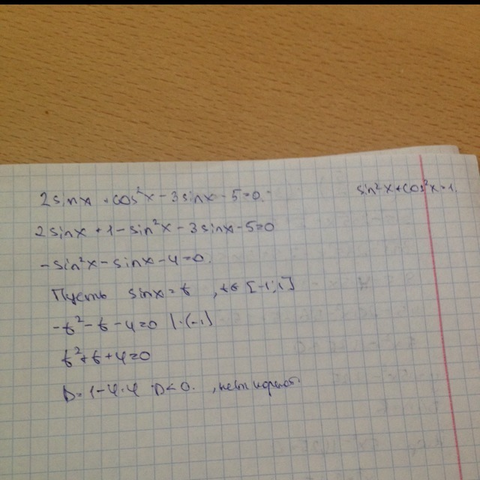 2sinx + cos²x - 3sinx - 5 = 0. sin²x + cos²x = 1.
2sinx + 1 - sin²x - 3sinx - 5 = 0
-sin²x - sinx - 4 = 0.
Пусть sinx = t, t∈[-1;1]
-t² - t - 4 = 0 |·(-1)
t² + t + 4 = 0
D = 1 - 4·4 D < 0. , нет корней.